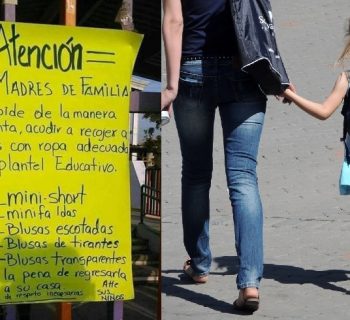 Atención=
MADRES DE FAMILIA
pide de la manera
nta, acudir a recojer a
s con ropa adecuada
plantel Educativo.
-mini-short
-minifaldas
-Blusas escotadas
-Blusas de tirantes
-Blusas transparentes
la pena de regresarla
a su casa Atte
de respeto SUS
NIÑOS